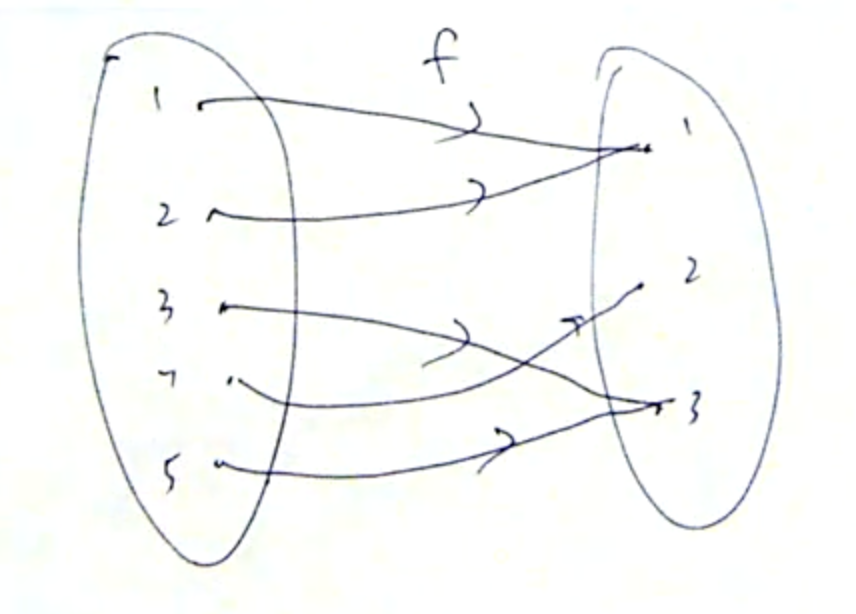 f
1
2
3
5
1
2
3